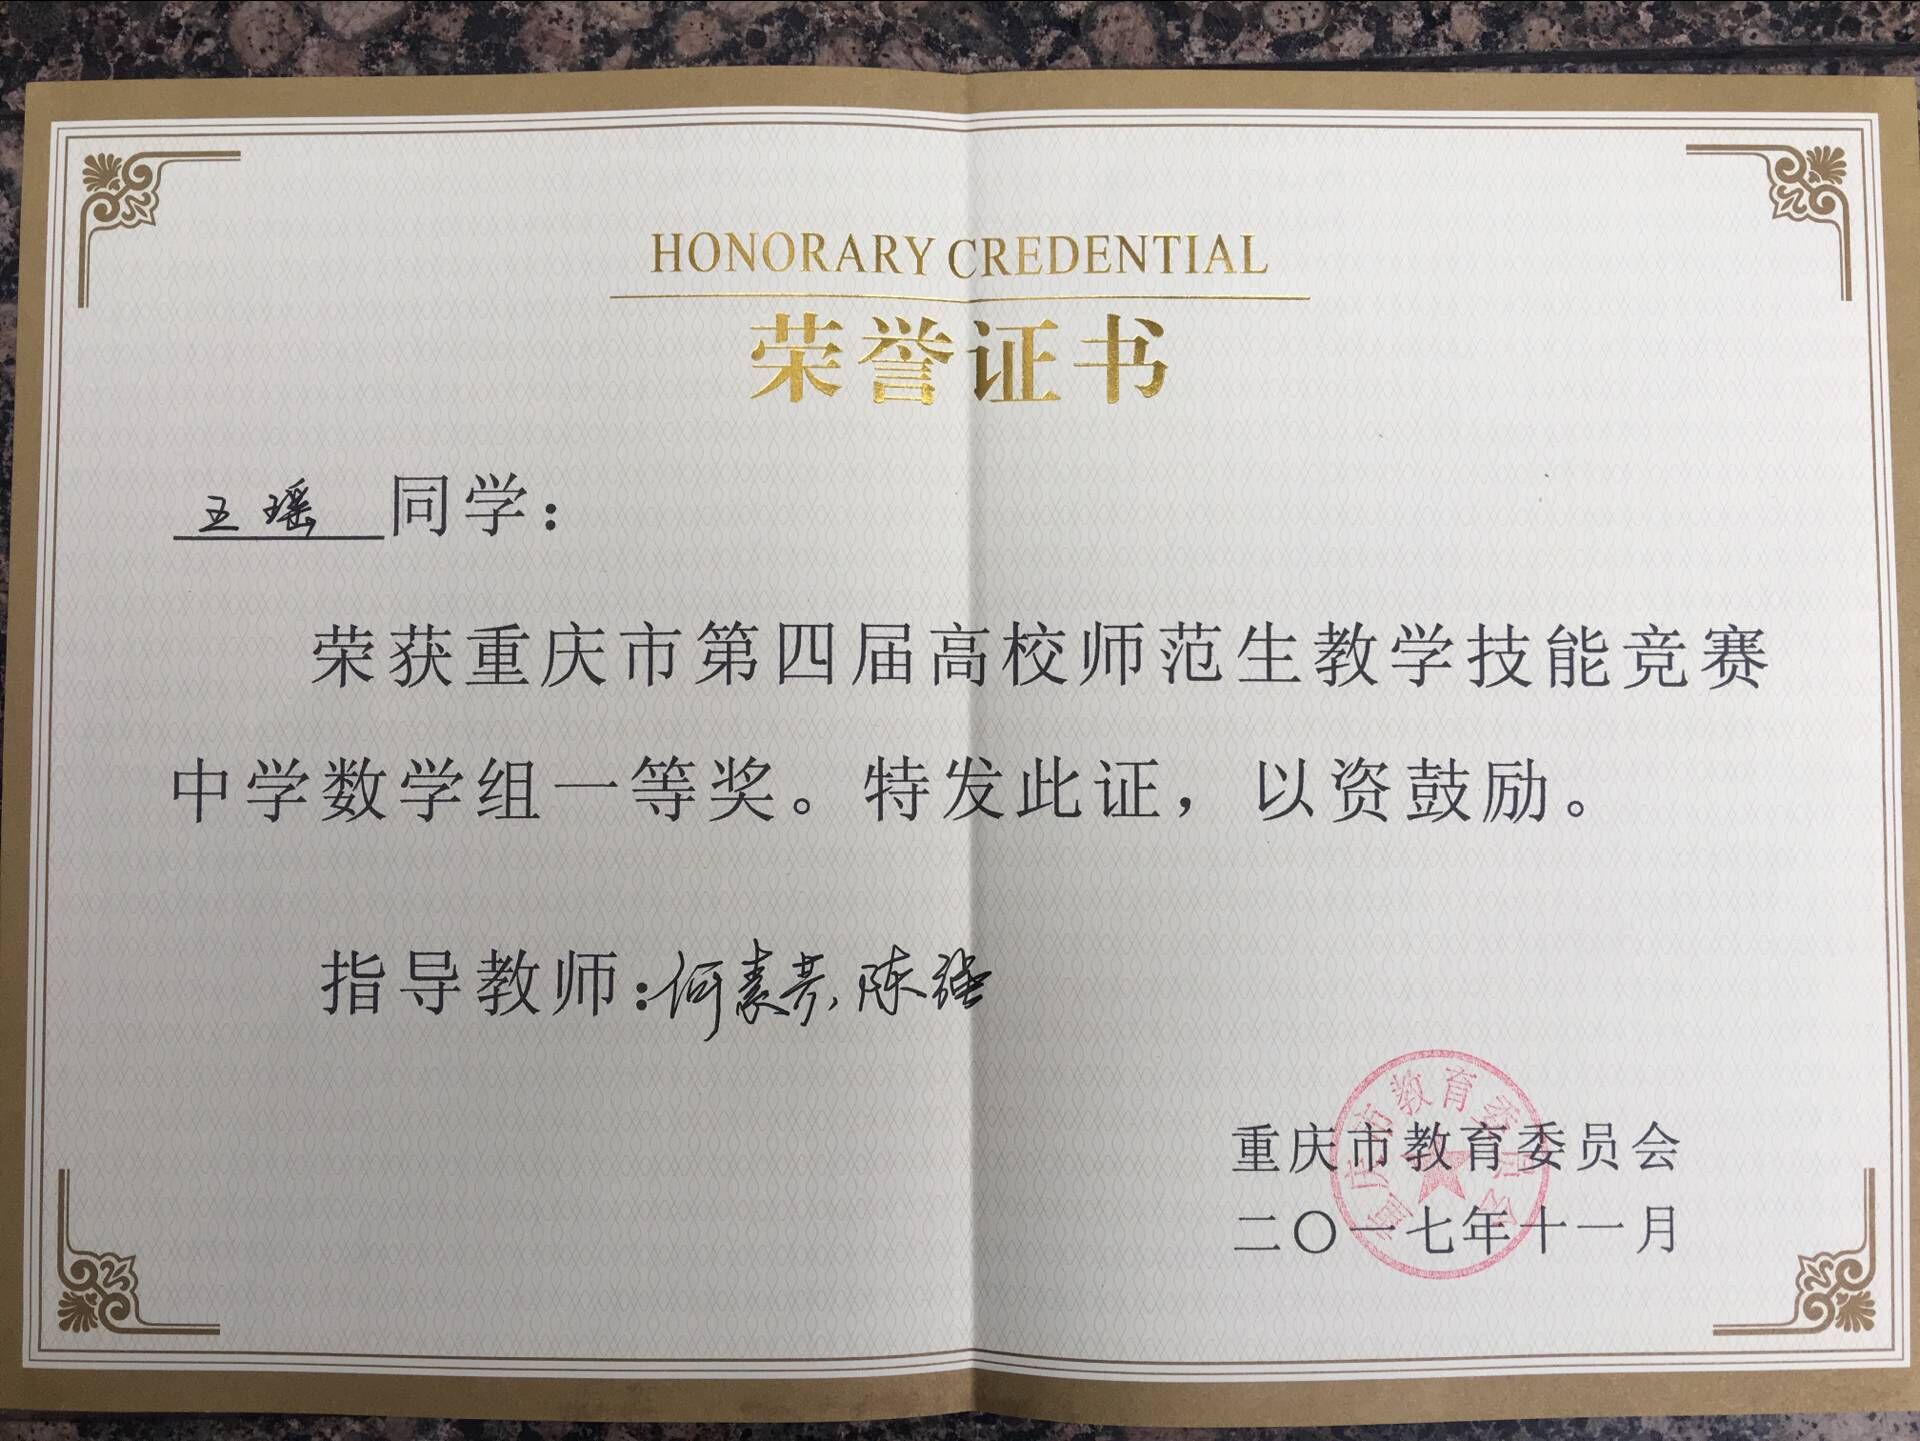 HONORARY CREDENTIAL
荣誉证书
王瑶 同学：
荣获重庆市第四届高校师范生教学技能竞赛
中学数学组一等奖。特发此证，以资鼓励。
指导教师：何素芳、陈强
重庆市教育委员会
二〇一七年十一月
重庆市教育委员会